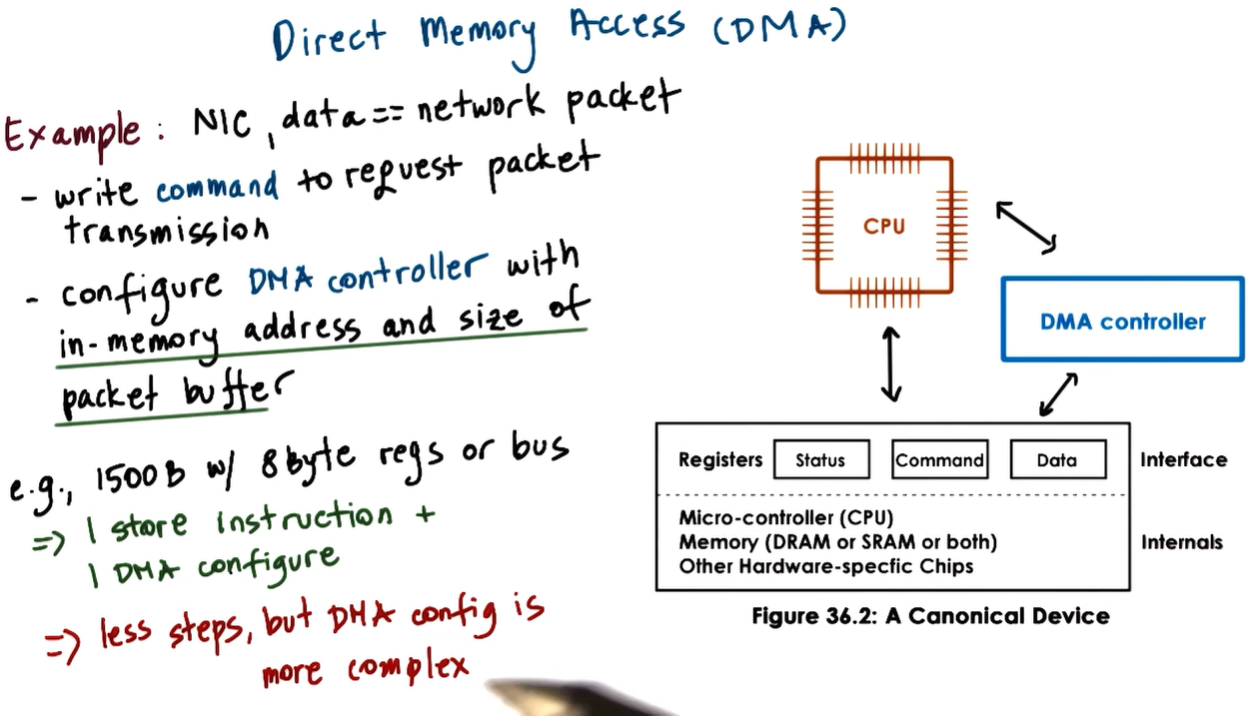 Direct Memory Access (DMA)
Example: NIC, data == network packet
- write command to request packet
transmission
- configure DMA controller with
in-memory address and size of
packet buffer
e.g., 1500B w/ 8byte regs or bus
=> 1 store instruction +
1 DMA configure
=> less steps, but DMA config is
more complex
CPU
DMA controller
Registers Status Command Data Interface
Micro-controller (CPU)
Memory (DRAM or SRAM or both)
Other Hardware-specfic Chips
Internals
Figure 36.2: A Canonical Device